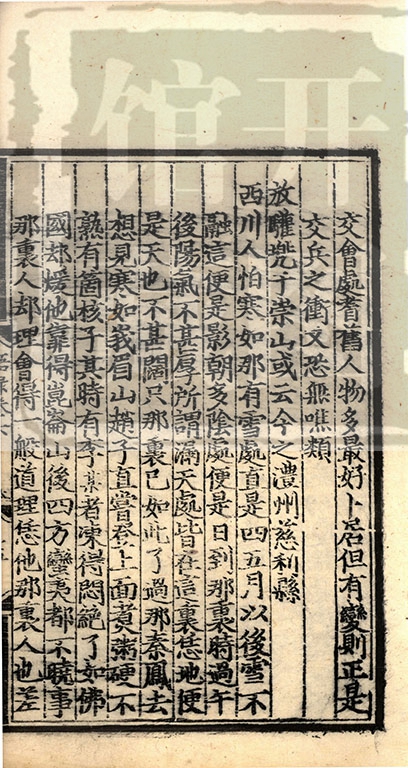 交會處耆舊人物多最好卜居但有變則正是
交兵之衝又恐無噍類
放驩兜于崇山或云今之澧州慈利縣
西川人怕寒如那有雪處直是四五月以後雪不
融這便是影朝多陰處便是日到那裏時過午
後陽氣不甚厚所謂漏天處皆在這裏恁地便
是天也不甚闊只那裏已如此了過那秦鳳去
想見寒如峩眉山趙子直嘗登上面煮粥硬不
熟有箇核子其時有李某者凍得悶絕了如佛
國却煖他靠得崑崙山後四方蠻夷都不曉事
那裏人却理會得一般道理恁他那裏人也差
開館